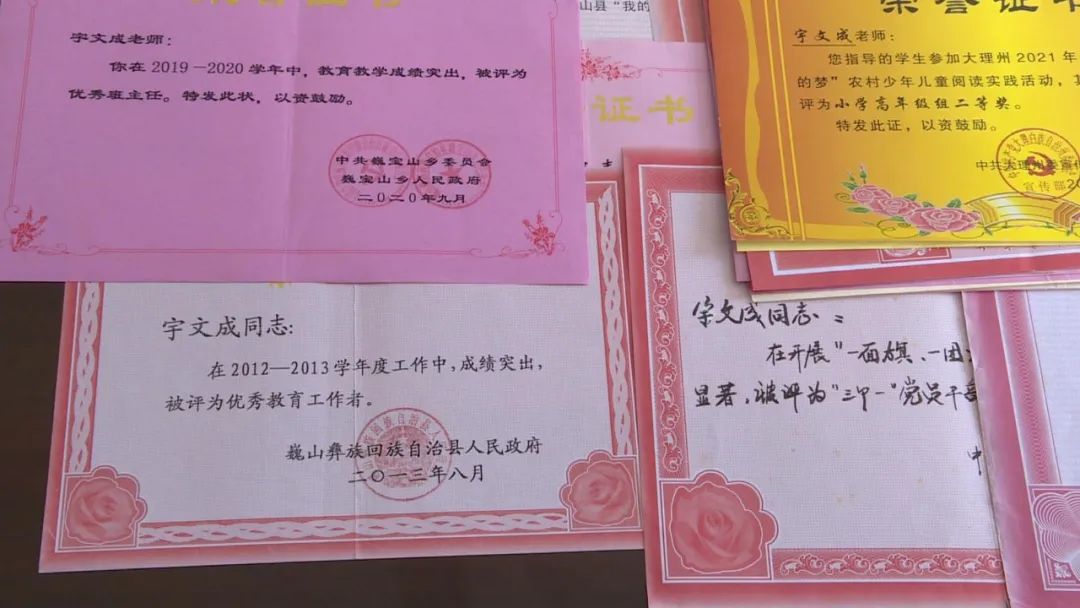 宇文成老师：
你在 2019—2020 学年中，教育教学成绩突出，被评为
优秀班主任。特发此状，以资鼓励。
中共巍宝山乡委员会
巍宝山乡人民政府
二〇二〇年九月
山县“我的
证书
荣誉证书
宇文成老师：
您指导的学生参加大理州 2021 年
的梦”农村少年儿童阅读实践活动，
评为小学高年级组二等奖。
特发此证，以资鼓励。
中共大理州委宣
宣传部
宇文成同志：
在2012—2013学年度工作中，成绩突出，
被评为优秀教育工作者。
巍山彝族回族自治县人民政府
二〇一三年八月
宇文成同志：
在开展“一面旗、一团
显著，被评为“三中一”党员干部
中